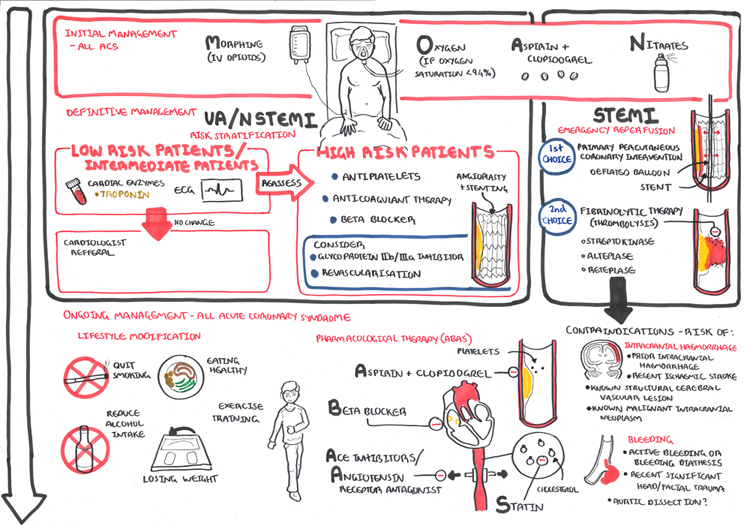 INITIAL MANAGEMENT
- ALL ACS
MORPHINE
(IV OPIOIDS)
OXYGEN
(IF OXYGEN
SATURATION <94%)
ASPIRIN +
CLOPIDOGREL
NITRATES
DEFINITIVE MANAGEMENT
UA/NSTEMI
RISK STRATIFICATION
LOW RISK PATIENTS/
INTERMEDIATE PATIENTS
CARDIAC ENZYMES
• TROPONIN
ECG
REASSESS
NO CHANGE
CARDIOLOGIST
REFERRAL
HIGH RISK PATIENTS
• ANTIPLATELETS
• ANTICOAGULANT THERAPY
• BETA BLOCKER
ANGIOPLASTY
+ STENTING
CONSIDER
• GLYCOPROTEIN IIb/IIIa INHIBITOR
• REVASCULARISATION
STEMI
EMERGENCY REPERFUSION
1st
CHOICE
PRIMARY PERCUTANEOUS
CORONARY INTERVENTION
DEFLATED BALLOON
STENT
2nd
CHOICE
FIBRINOLYTIC THERAPY
(THROMBOLYSIS)
• STREPTOKINASE
• ALTEPLASE
• RETEPLASE
ONGOING MANAGEMENT - ALL ACUTE CORONARY SYNDROME
LIFESTYLE MODIFICATION
QUIT
SMOKING
EATING
HEALTHY
REDUCE
ALCOHOL
INTAKE
EXERCISE
TRAINING
LOSING WEIGHT
PHARMACOLOGICAL THERAPY (ABAS)
PLATELETS
ASPIRIN + CLOPIDOGREL
BETA BLOCKER
ACE INHIBITORS/
ANGIOTENSIN
RECEPTOR ANTAGONIST
STATIN
CHOLESTEROL
CONTRAINDICATIONS - RISK OF:
INTRACRANIAL HAEMORRHAGE
• PRIOR INTRACRANIAL
HAEMORRHAGE
• RECENT ISCHAEMIC STROKE
• KNOWN STRUCTURAL CEREBRAL
VASCULAR LESION
• KNOWN MALIGNANT INTRACRANIAL
NEOPLASM
BLEEDING
• ACTIVE BLEEDING OR
BLEEDING DIATHESIS
• RECENT SIGNIFICANT
HEAD/FACIAL TRAUMA
• AORTIC DISSECTION?